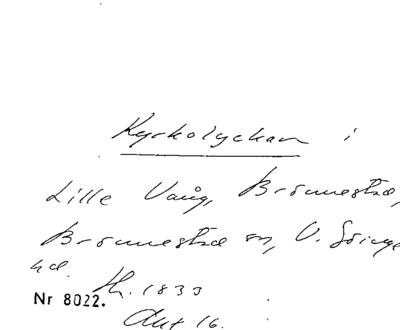 Kyrkolyckan i
Lille Vång, Brönnestad,
Brönnestad sn, V. Göinge
hd. Th. 1833
Nr 8022.
Akt 16.